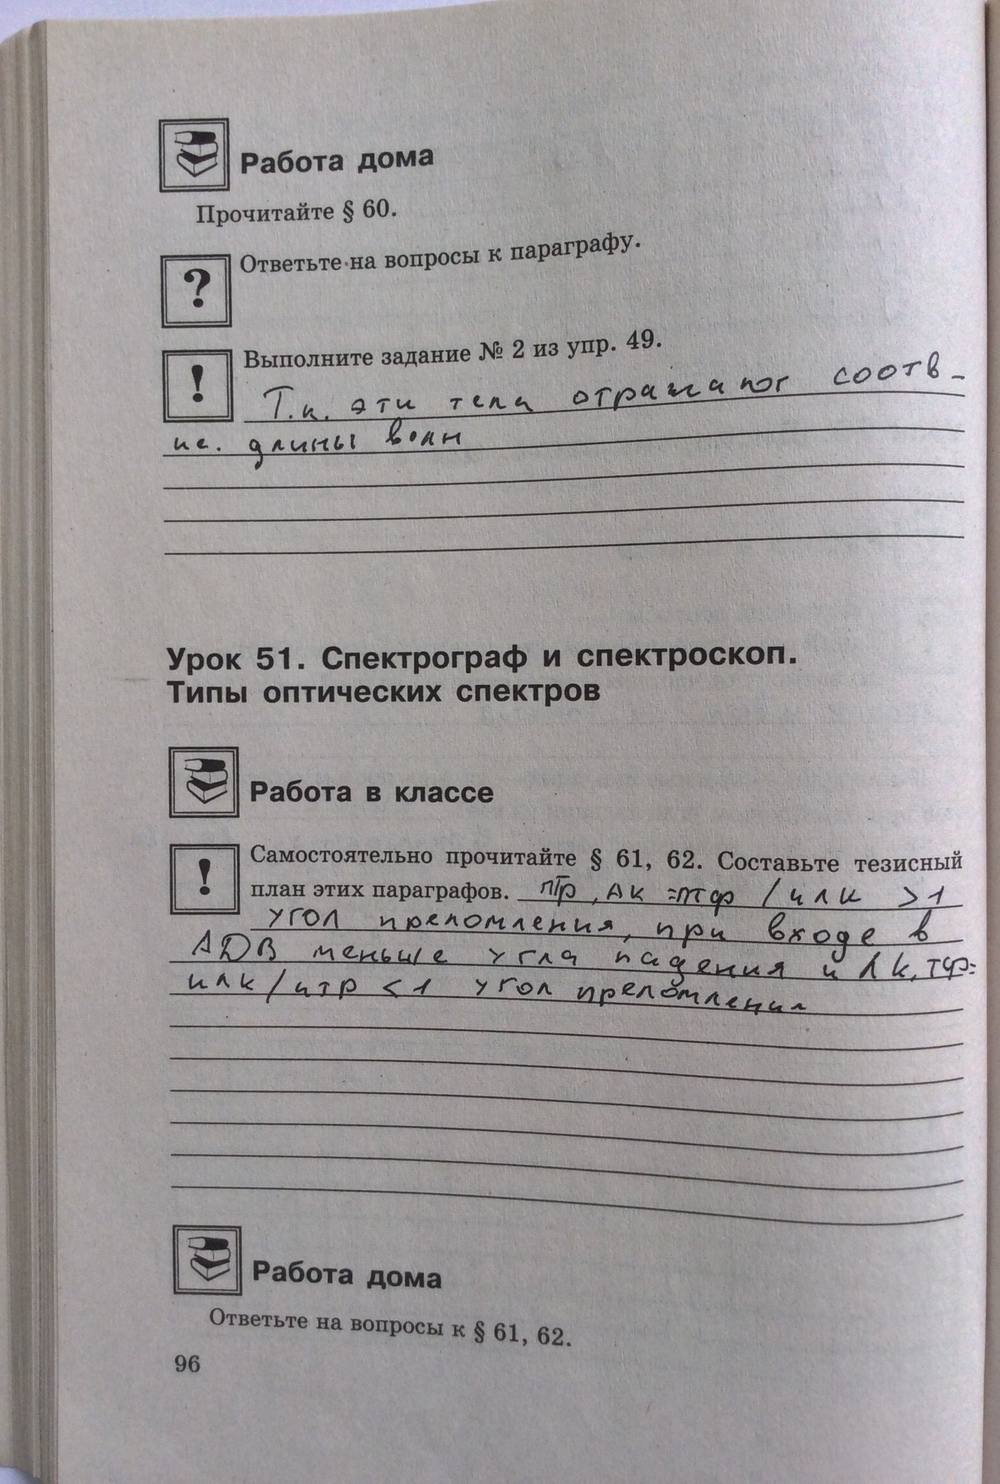 Работа дома
Прочитайте § 60.
?
Ответьте на вопросы к параграфу.
!
Выполните задание № 2 из упр. 49.
Т.к. эти тела отражают соотв-
ие. длины волн
Урок 51. Спектрограф и спектроскоп.
Типы оптических спектров
Работа в классе
!
Самостоятельно прочитайте § 61, 62. Составьте тезисный
план этих параграфов. / nлк >1
угол преломления, при входе в
ADB меньше угла падения и
nлк/nтр <1 угол преломления
Работа дома
Ответьте на вопросы к § 61, 62.
96